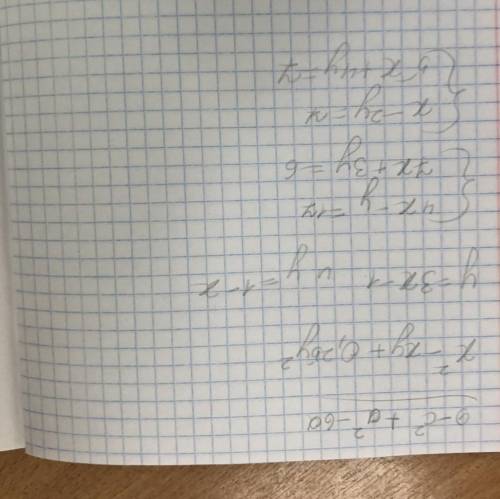 9-c² + a² - 6a
x² - xy + 0,25y²
y = 3x - 1 и y = 1 - x
{ 4x - y = 17
{ 7x + 3y = 6
{ x - 2y = 7
{ 5x + 4y = 7